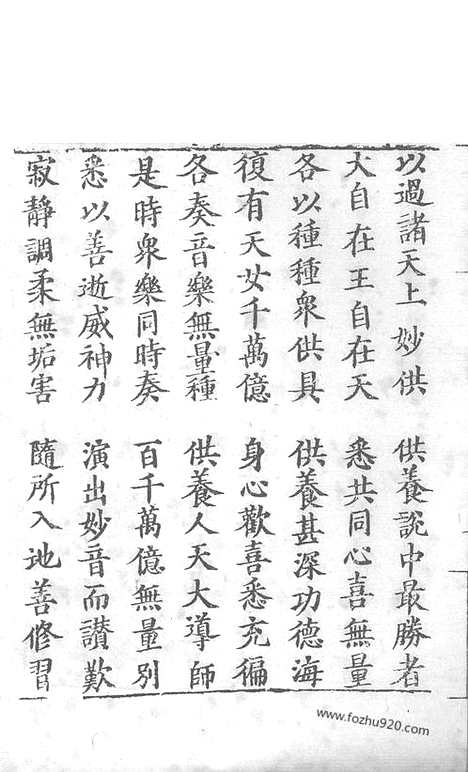 以過諸天上妙供　供養說中最勝者
大自在王自在天　悉共同心喜無量
各以種種衆供具　供養甚深功德海
復有天女千萬億　身心歡喜悉充徧
各奏音樂無量種　供養人天大導師
是時衆樂同時奏　百千萬億無量別
悉以善逝威神力　演出妙音而讃歎
寂靜調柔無垢害　隨所入地善修習
www.fozhu920.com